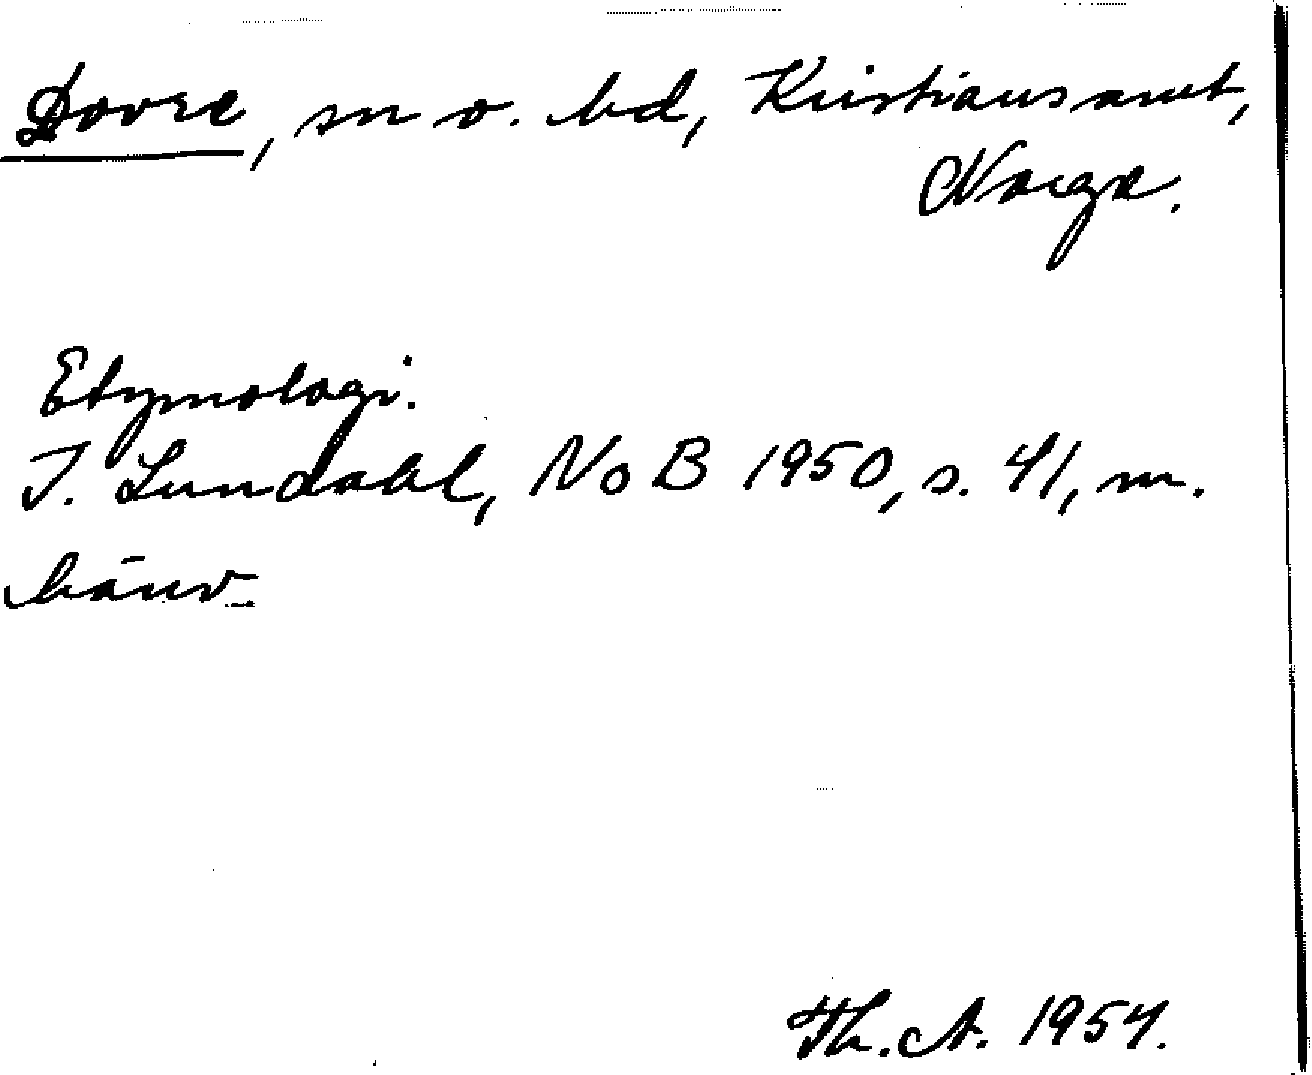 Dovre, sn o. bd, Kristians amt,
Norge.
Etymologi.
I. Lundahl, NoB 1950, s. 41, m.
hänv.
Th. A. 1954.